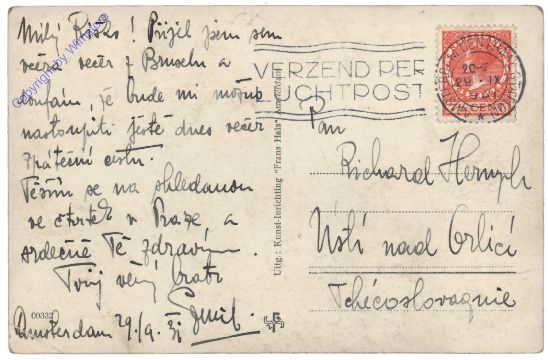 Milý Ríško! Přijel jsem sem
včera večer z Bruselu a
doufám, že bude mi možno
nastoupiti ještě dnes večer
zpáteční cestu.
Těším se na shledanou
ve čtvrtek v Praze a
srdečně Tě zdravím
Tvůj věrný bratr
Emil
Amsterdam 29/9. 31
00332
Copyright by
Uitg: Kunst-Inrichting "Frans Hals" Amsterdam
VERZEND PER
LUCHTPOST
AMSTERDAM CENTRAAL STATION
29 IX
Pan
Richard
Ústí nad Orlicí
Tchécoslovaquie